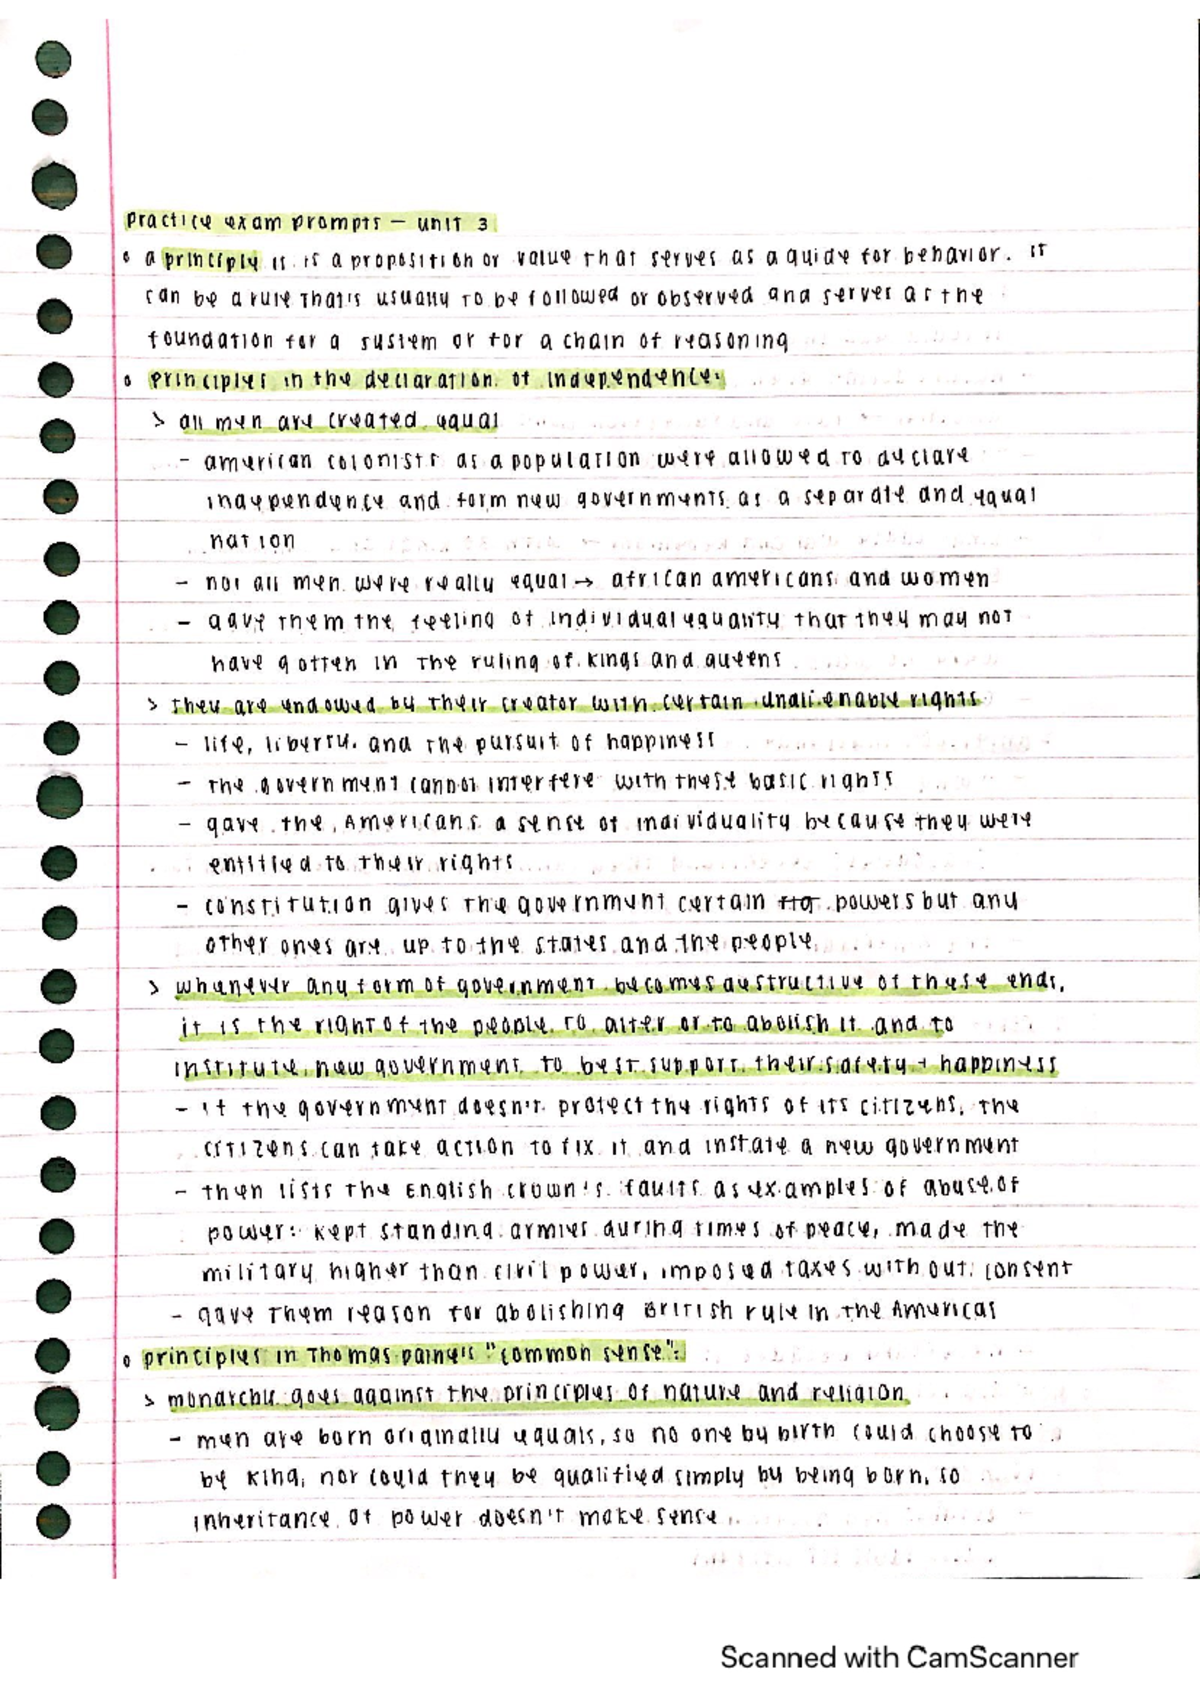 practice exam prompts – unit 3
◦ a principle is is a proposition or value that serves as a guide for behavior. it
can be a rule that's usually to be followed or observed and serves as the
foundation for a system or for a chain of reasoning
◦ principles in the declaration of independence:
> all men are created equal
- american colonists as a population were allowed to declare
independence and form new governments as a separate and equal
nation
- not all men were really equal → african americans and women
- gave them the feeling of individual equality that they may not
have gotten in the ruling of kings and queens
> they are endowed by their creator with certain unalienable rights
- life, liberty, and the pursuit of happiness
- the government cannot interfere with these basic rights
- gave the Americans a sense of individuality because they were
entitled to their rights
- constitution gives the government certain powers but any
other ones are up to the states and the people
> whenever any form of government becomes destructive of these ends,
it is the right of the people to alter or to abolish it and to
institute new government to best support their safety + happiness
- if the government doesn't protect the rights of its citizens, the
citizens can take action to fix it and instate a new government
- then lists the English crown's faults as examples of abuse of
power: kept standing armies during times of peace, made the
military higher than civil power, imposed taxes without consent
- gave them reason for abolishing British rule in the Americas
◦ principles in Thomas paine's "common sense":
> monarchy goes against the principles of nature and religion
- men are born originally equals, so no one by birth could choose to
be king, nor could they be qualified simply by being born, so
inheritance of power doesn't make sense
Scanned with CamScanner